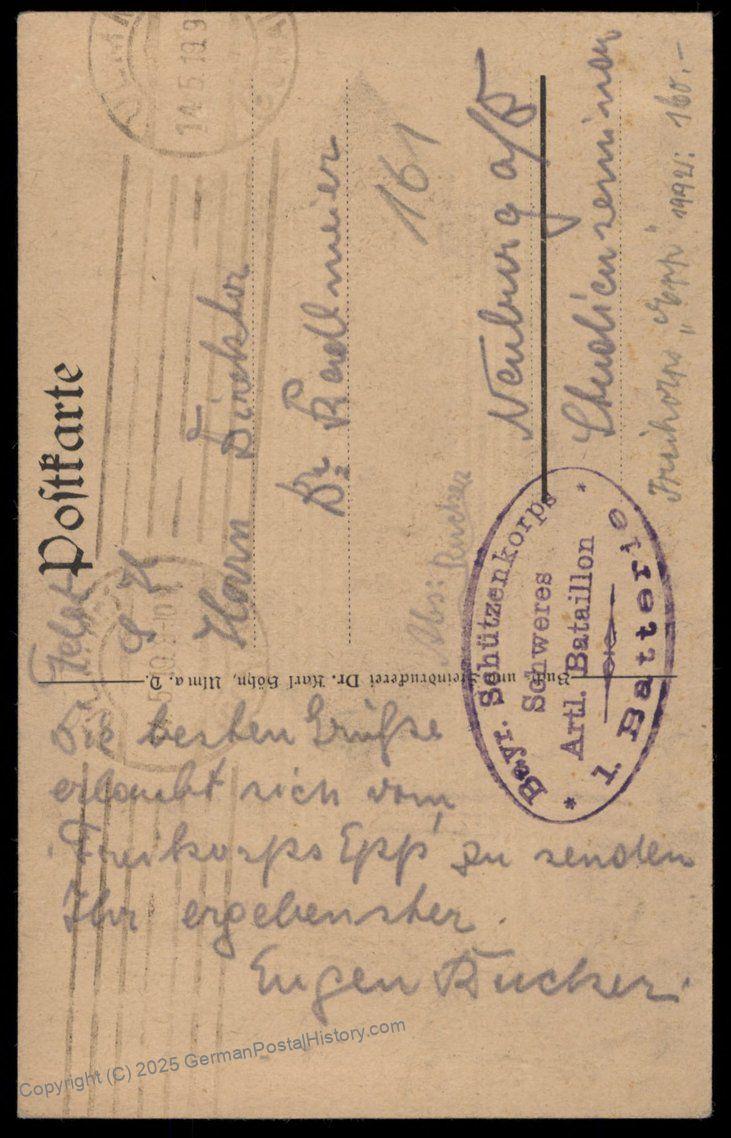 Postkarte
S. H.
Herrn Direktor
Dr. Radlmeier
Neuburg a/D
Studienseminar
161
Freikorps „Epp“ 1992: 160.-
Abs: Rucker
Buch- und Steindruckerei Dr. Karl Höhn, Ulm a. D.
Bayr. Schützenkorps
Schweres
Artl. Bataillon
1. Batterie
14.5.19 9
Die besten Grüße
erlaubt sich vom
Freikorps Epp zu senden
Ihr ergebenster
Eugen Rucker.
Copyright (C) 2025 GermanPostalHistory.com